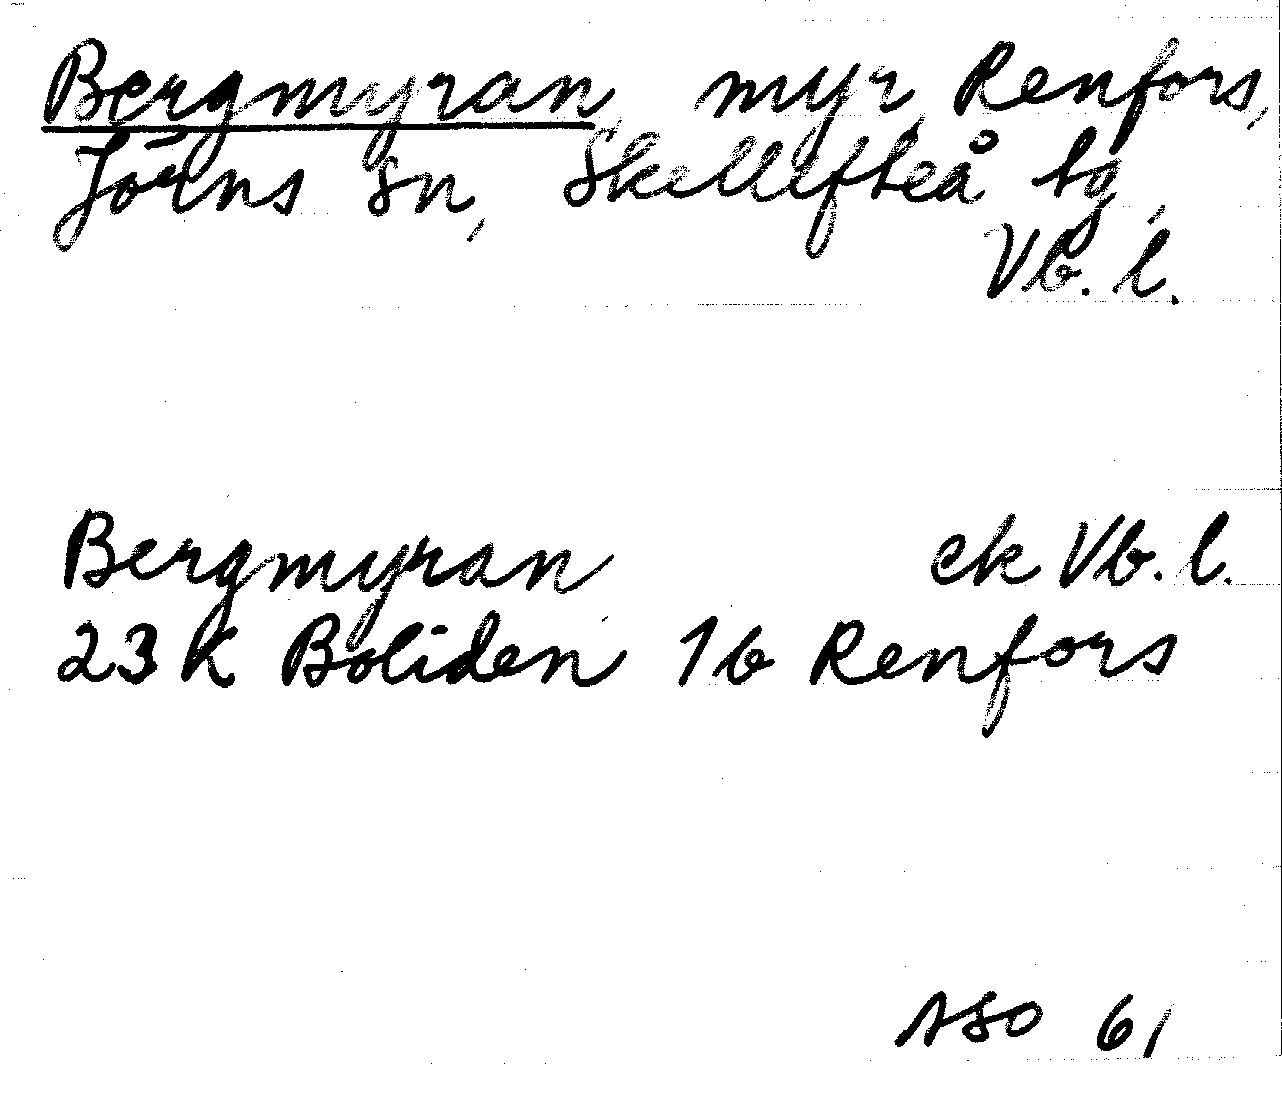 Bergmyran myr Renfors,
Jörns sn, Skellefteå tg,
Vb. l.
Bergmyran ek Vb. l.
23 K Boliden 1b Renfors
ASO 61